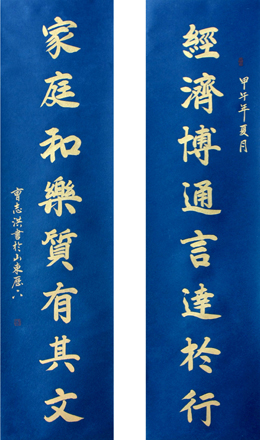 經濟博通言達於行
甲午年夏月
家庭和樂質有其文
曹志洪書於山東